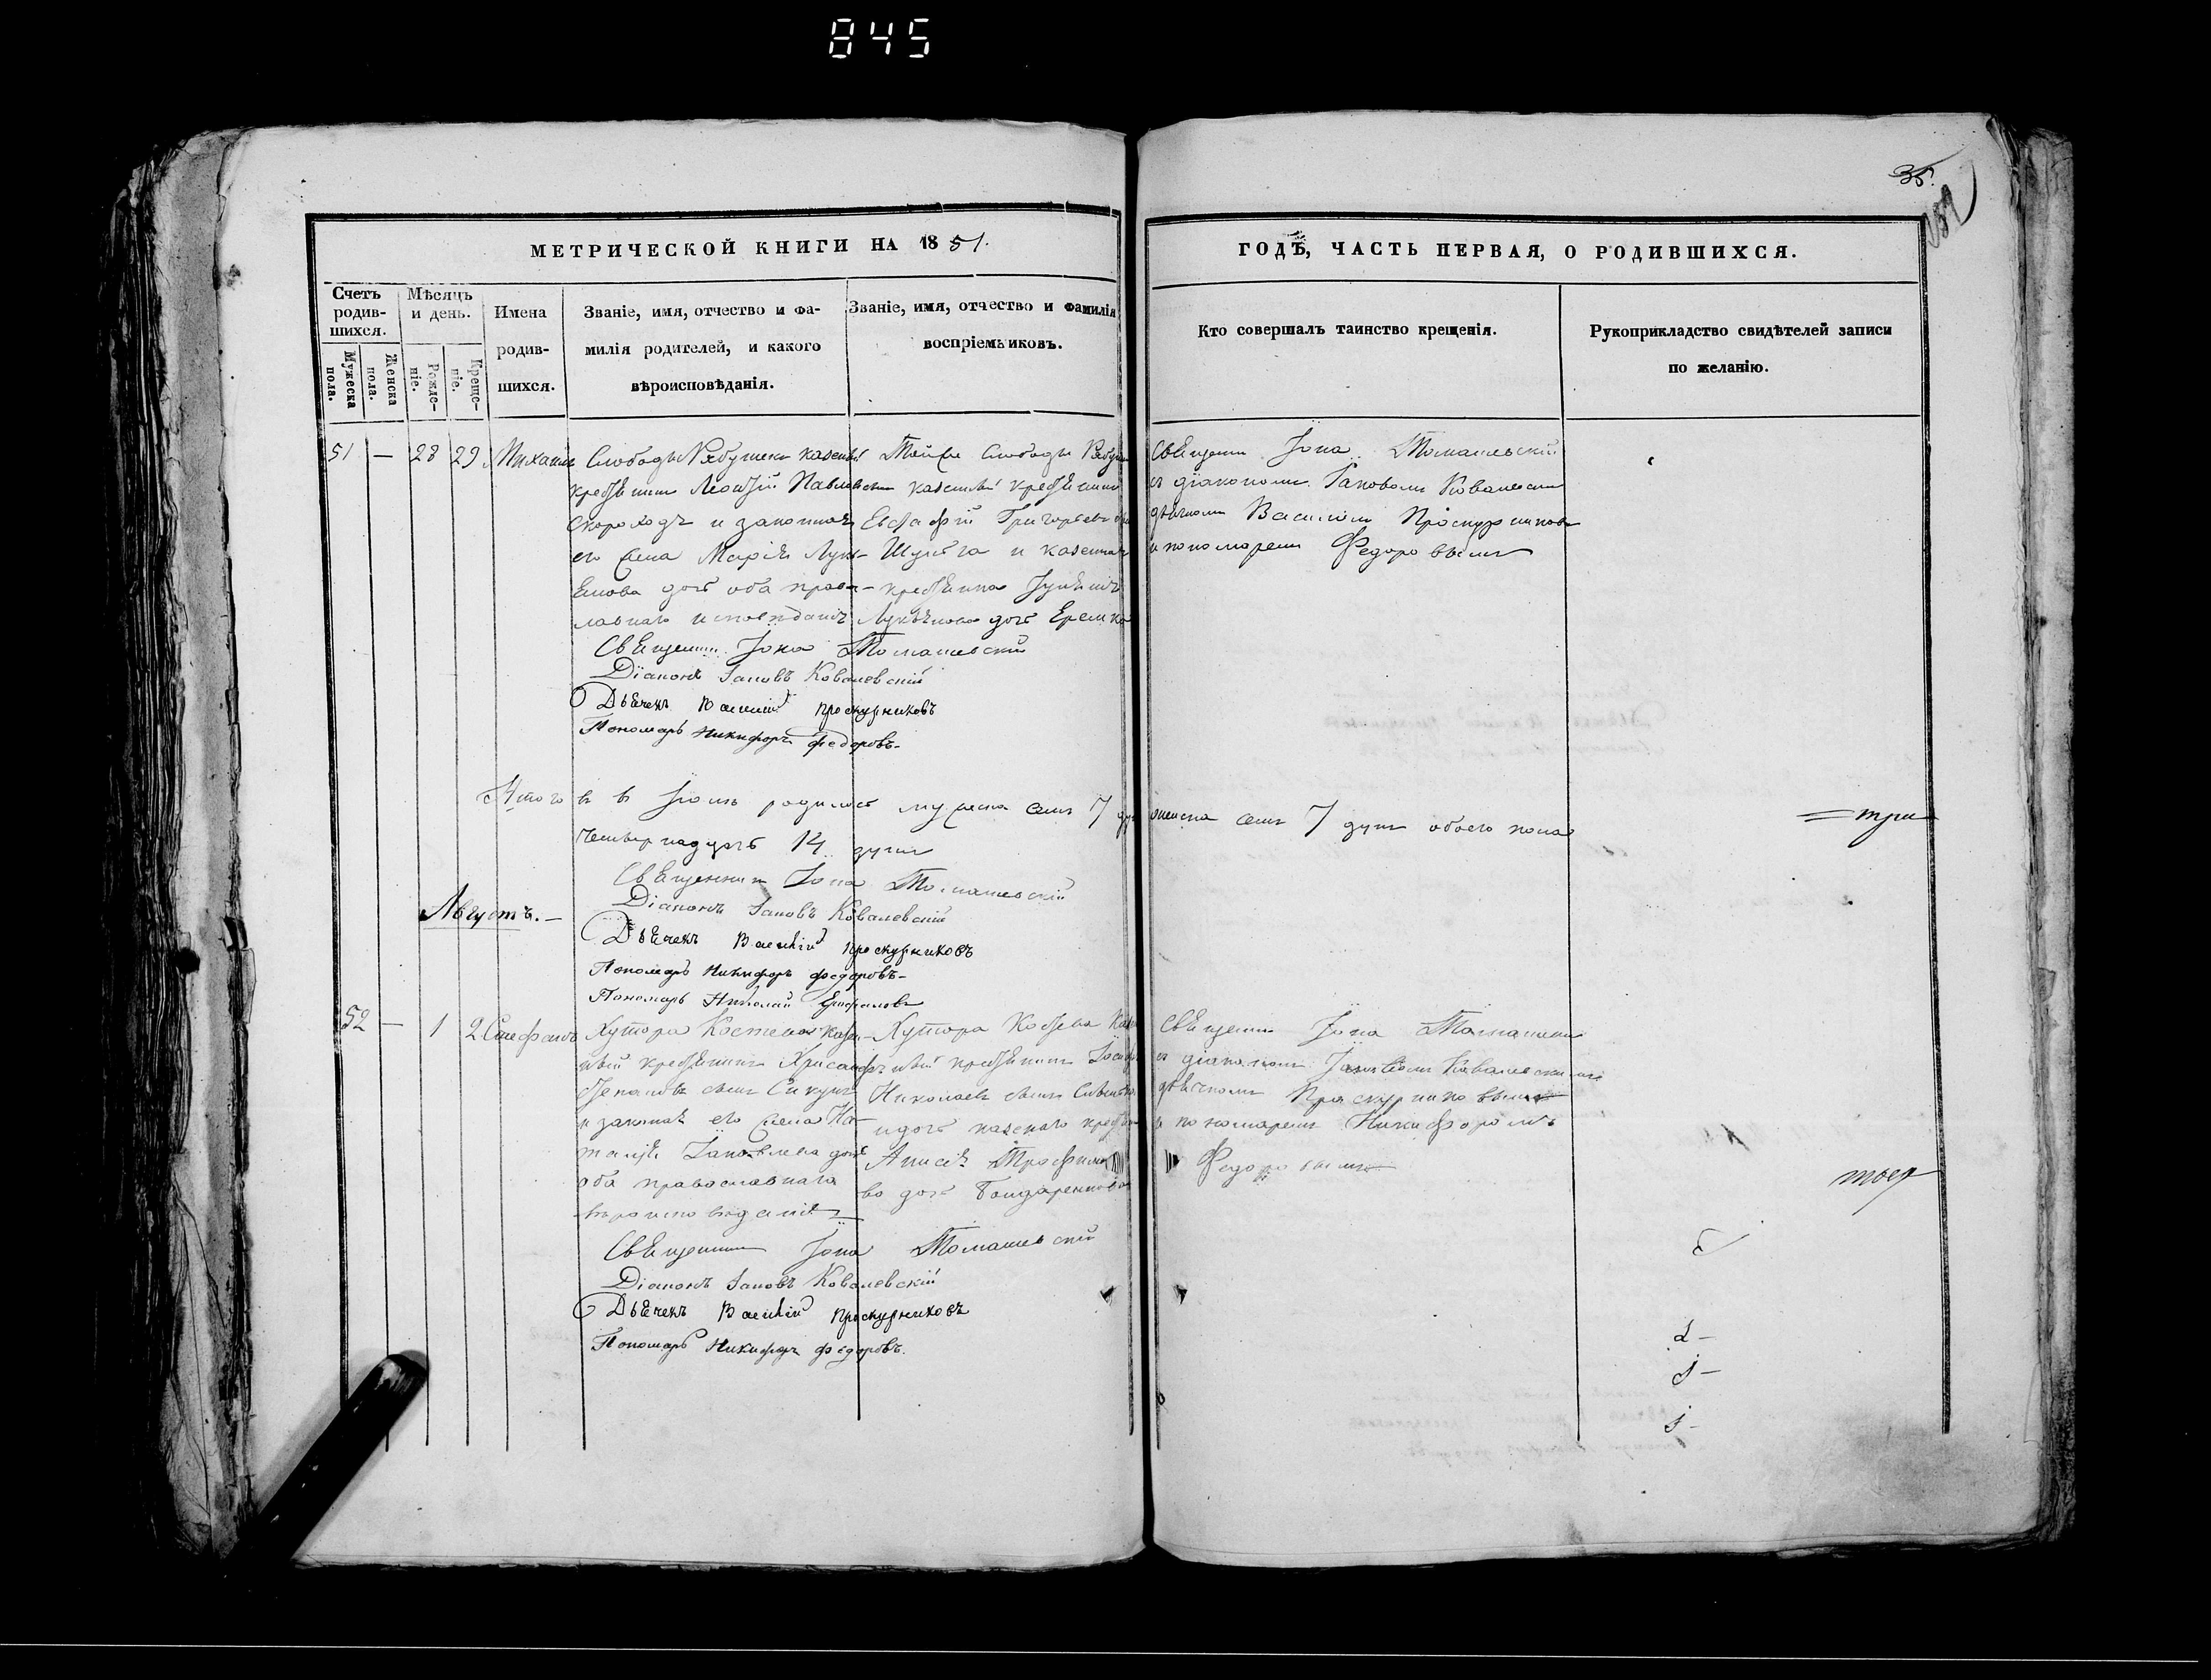 845
35.
МЕТРИЧЕСКОЙ КНИГИ НА 1851.
ГОДЪ, ЧАСТЬ ПЕРВАЯ, О РОДИВШИХСЯ.
Счетъ родив-шихся.
Мужеска пола.
Женска пола.
Мѣсяцъ и день.
Рожде-ніе.
Креще-ніе.
Имена
родив-
шихся.
Званіе, имя, отчество и фа-
милія родителей, и какого
вѣроисповѣданія.
Званіе, имя, отчество и фамилія
воспріемниковъ.
Кто совершалъ таинство крещенія.
Рукоприкладство свидѣтелей записи
по желанію.
51 — 28 29 Михаилъ
Слободы Рябушекъ казеный
крестьянинъ Леонтій Павловъ сынъ
Скороходъ и законная
его жена Марія Лукь-
янова дочь оба право-
славнаго исповѣданія
Тойже Слободы
казенный крестьянинъ
Евстафій Григорьевъ
Шульга и казенная
крестьянка
Лукьянова дочь
Священникъ Іона Томашевскій
съ діакономъ Іаковомъ Ковалевскимъ
дьячкомъ Василіемъ Проскурниковымъ
и пономаремъ Федоровымъ
Священникъ Іона Томашевскій
Діаконъ Іаковъ Ковалевскій
Дьячекъ Василій Проскурниковъ
Пономарь Никифоръ Федоровъ
Итого въ Іюлѣ родилось мужеска семь 7 душъ женска семь 7 душъ обоего пола
четырнадцать 14 душъ
Священникъ Іона Томашевскій
Діаконъ Іаковъ Ковалевскій
Дьячекъ Василій Проскурниковъ
Пономарь Никифоръ Федоровъ
Пономарь Николай
Августъ.
52 — 1 2 Стефанъ
Хутора Костева казен-
ный крестьянинъ Хрисанфъ
Степановъ сынъ
и законная его жена На-
талія Іаковлева дочь
оба православнаго
вѣроисповѣданія
Хутора Костева
ный крестьянинъ
Николаевъ сынъ
и дочь казенаго
Анисія Трофимо
ва дочь Бондаренкова
Священникъ Іона Томашевскій
съ діакономъ Іаковомъ Ковалевскимъ
дьячкомъ Проскурниковымъ
и пономаремъ Никифоромъ
Федоровымъ
Священникъ Іона Томашевскій
Діаконъ Іаковъ Ковалевскій
Дьячекъ Василій Проскурниковъ
Пономарь Никифоръ Федоровъ.